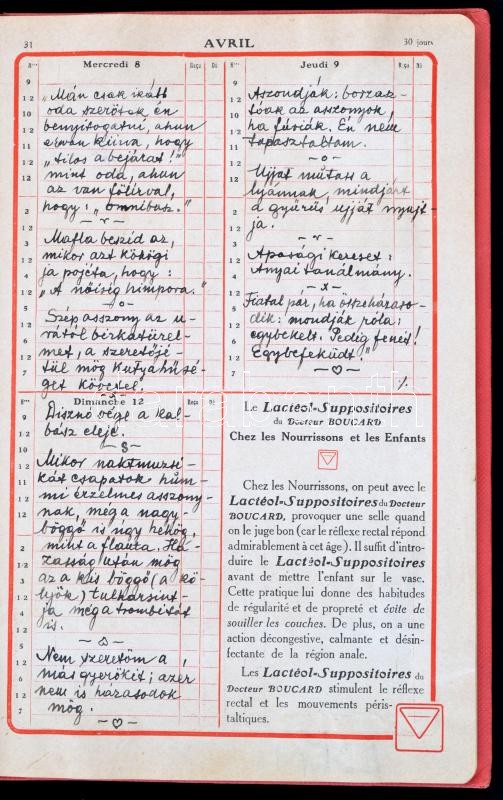 31
AVRIL
30 jours
Mercredi 8
Reçu
Dû
„Mán csak ikább
oda szerötök én
bemyitogatni, ahun
ki van írva, hogy
„tilos a bejárat!"
mint oda, ahun
az van fölírval,
hogy: „omnibusz."
Mafla beszéd az,
mikor azt Kökögi
ja pojéta, hogy:
„A nőiség himpora."
Szép asszony az u-
rától birkatürel-
met, a szeretőjé-
tül mög kutyahűsé-
get követel.
Dimanche 12
Reçu
Dû
Disznó vége a kal-
bász eleje.
Mikor naktmuzsi-
kát csapatok hüm-
mi érzelmes asszony-
nak, még a nagy-
bőggő is úgy hehög,
mint a flauta. Há-
zasság után mög
az a kis bőggő (a kö-
lyök) tulharsint-
ja még a trombitát
is.
Nem szeretöm a
más gyerökit; azér
nem is házasodok
mög.
Jeudi 9
Reçu
Dû
Aszondják: borzasz-
tóak az asszonyok,
ha fúriák. Én nem
tapasztaltam.
Ujjat mutass a
lyánnak, mindjárt
a gyűrűs ujját nyujt-
ja.
Apasági kereset:
Anyai tanálmány.
Fiatal pár, ha összeházaso-
dik: mondják róla:
egybekelt. Pedig fenét!
Egybefeküdt."
·/.
Le Lactéol-Suppositoires
du Docteur BOUCARD
Chez les Nourrissons et les Enfants
Chez les Nourrissons, on peut avec le
Lactéol-Suppositoires du Docteur
BOUCARD, provoquer une selle quand
on le juge bon (car le réflexe rectal répond
admirablement à cet âge). Il suffit d'intro-
duire le Lactéol-Suppositoires
avant de mettre l'enfant sur le vase.
Cette pratique lui donne des habitudes
de régularité et de propreté et évite de
souiller les couches. De plus, on a une
action décongestive, calmante et désin-
fectante de la région anale.
Les Lactéol-Suppositoires du
Docteur BOUCARD stimulent le réflexe
rectal et les mouvements péris-
taltiques.